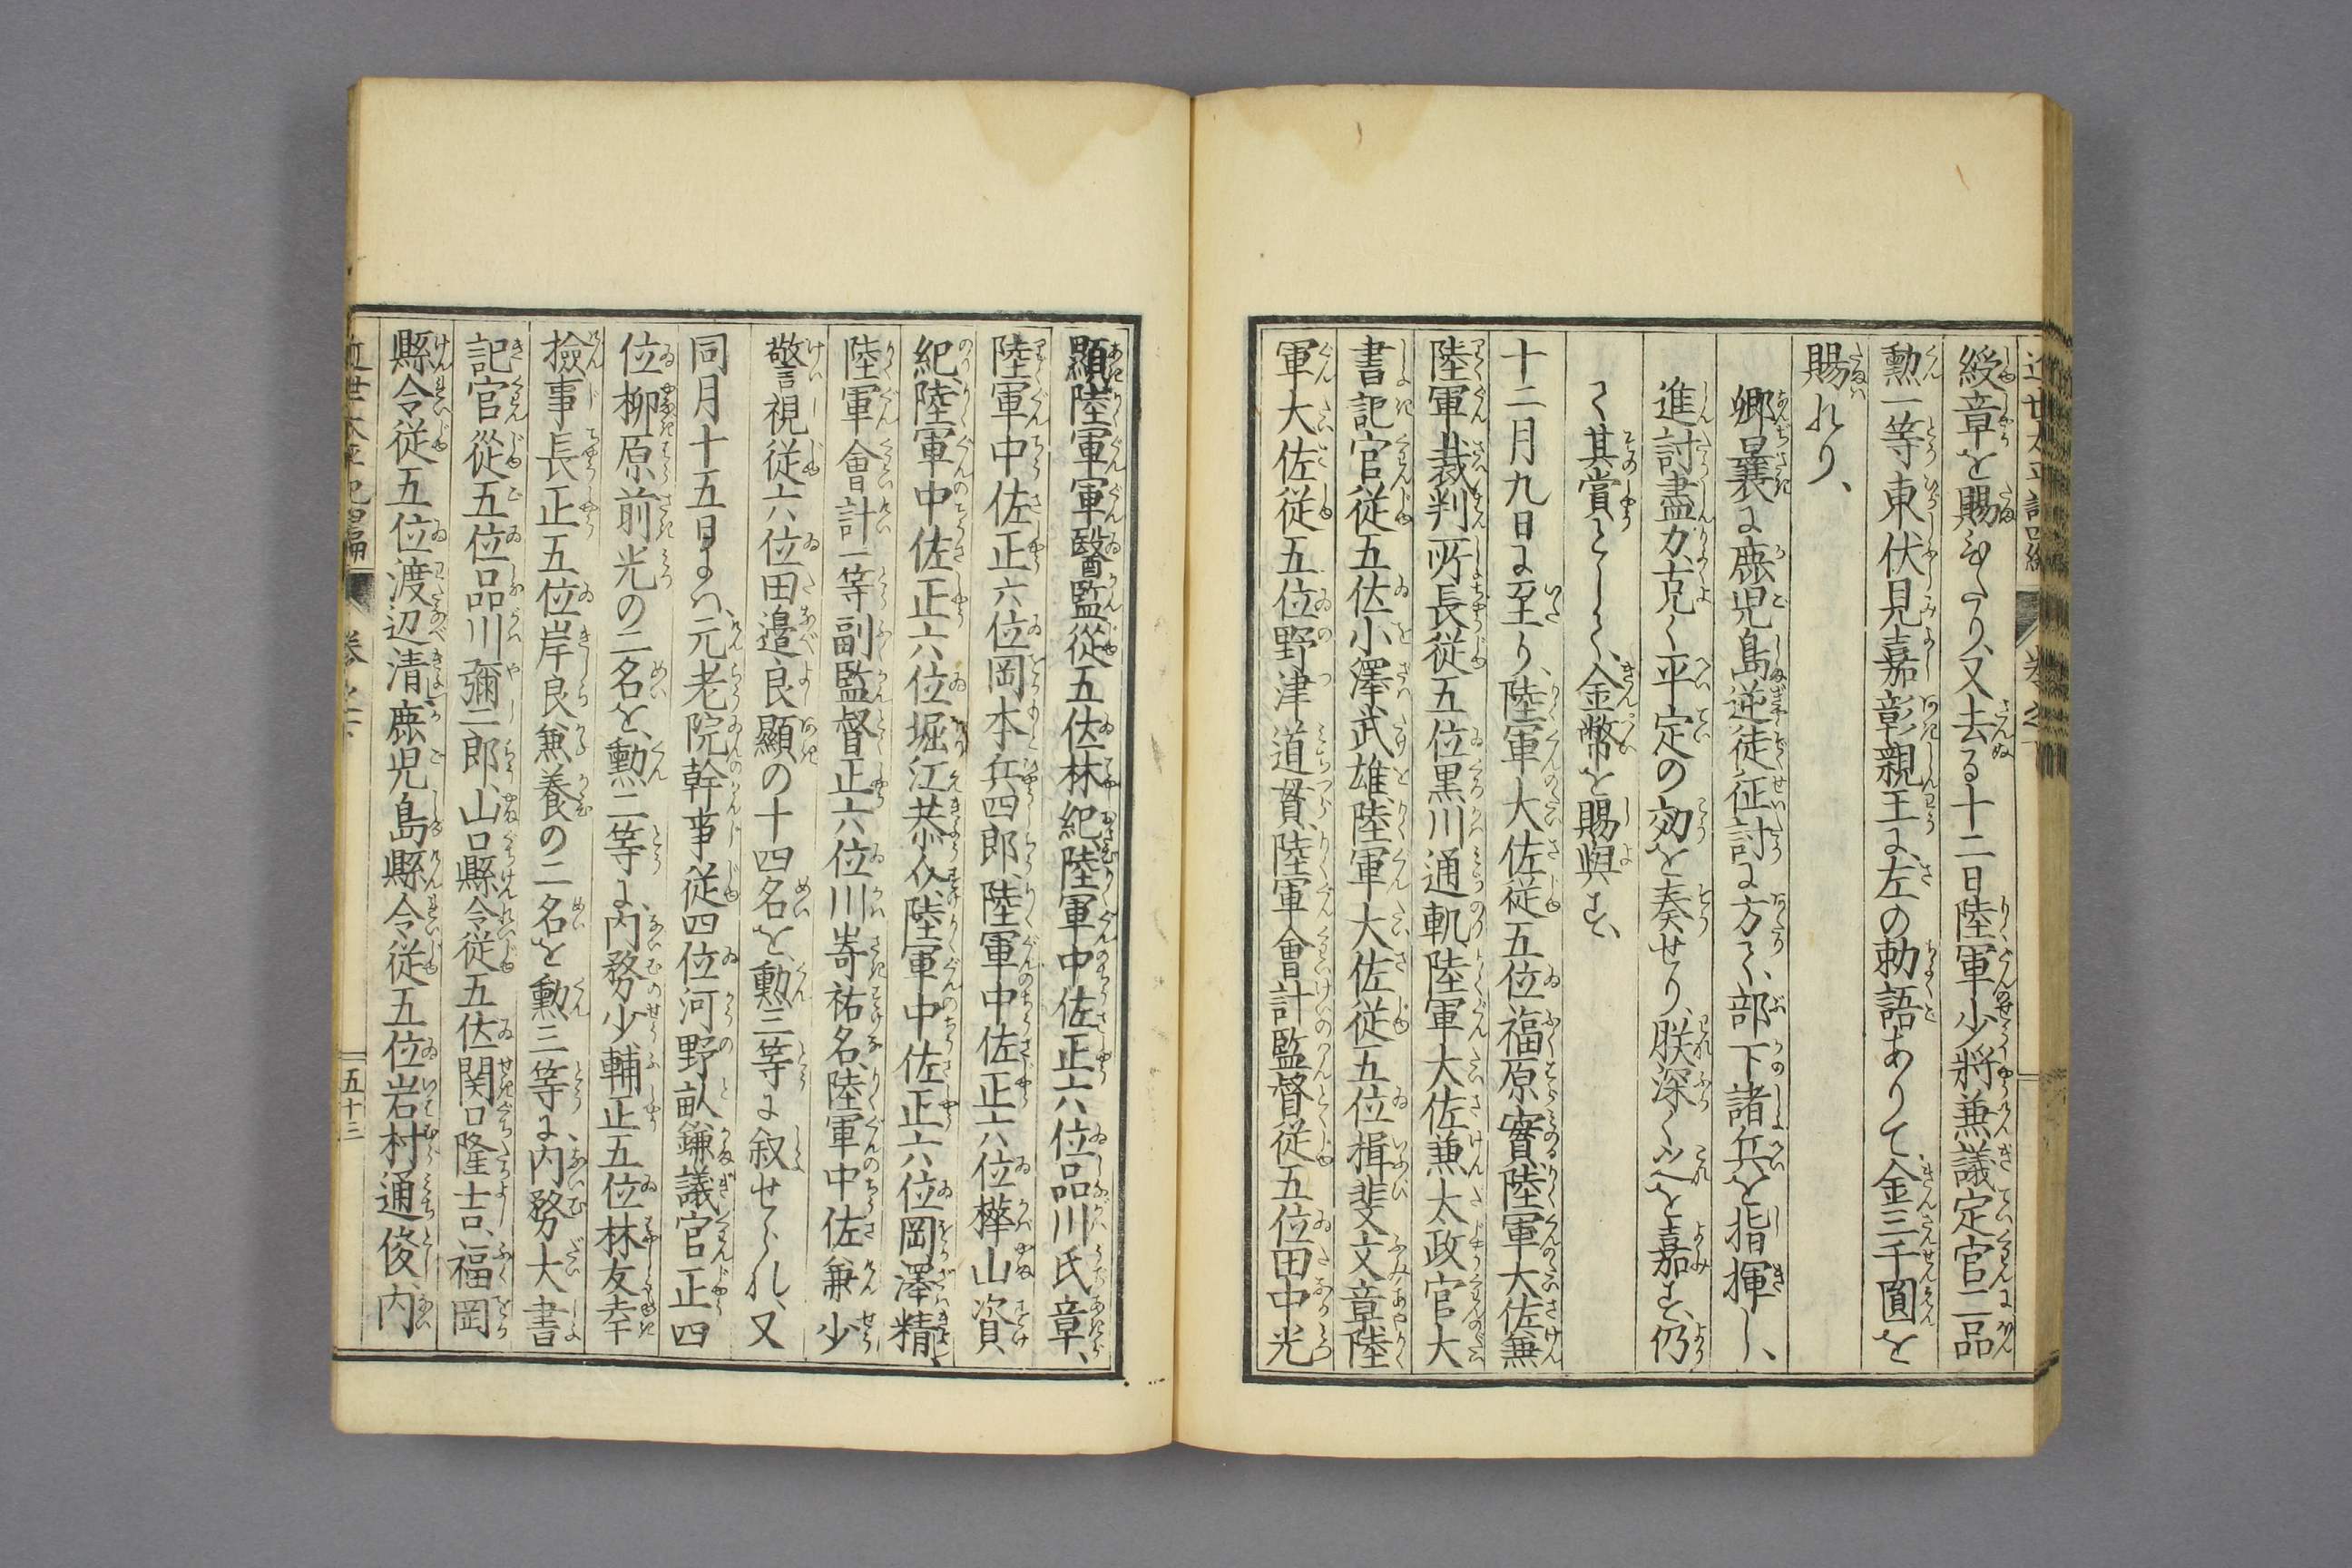 綬章を賜ひたり、又去る十二日陸軍少将兼議定官二品
勲一等東伏見嘉彰親王に、左の勅語ありて金三千圓を
賜れり、
卿曩に鹿児島逆徒征討に方て、部下諸兵を指揮し、
進討盡力、克く平定の効を奏せり、朕深く之を嘉す、仍
て其賞として、金幣を賜與す、
十二月九日に至り、陸軍大佐従五位福原實、陸軍大佐兼
陸軍裁判所長従五位黒川通軌、陸軍大佐兼太政官大
書記官従五位小澤武雄、陸軍大佐従五位揖斐文章、陸
軍大佐従五位野津道貫、陸軍會計監督従五位田中光
顯、陸軍軍醫監従五位林紀、陸軍中佐正六位品川氏章、
陸軍中佐正六位岡本兵四郎、陸軍中佐正六位樺山資
紀、陸軍中佐正六位堀江恭仏、陸軍中佐正六位岡澤精、
陸軍會計一等副監督正六位川嵜祐名、陸軍中佐兼少
警視従六位田邉良顯の十四名を、勲三等に叙せられ、又
同月十五日にハ、元老院幹事従四位河野敏鎌議官正四
位柳原前光の二名を、勲二等に、内務少輔正五位林友幸
檢事長正五位岸良兼養の二名を勲三等に、内務大書
記官従五位品川彌二郎、山口縣令従五位関口隆吉、福岡
縣令従五位渡辺清、鹿児島縣令従五位岩村通俊、内
五十三